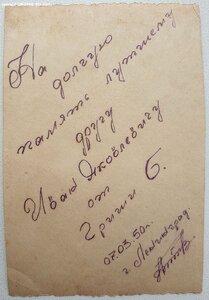 На
долгую
память лучшему
другу
Ивану Яковлевичу
от
Гриши Б.
07.03.50г.
г. Ленинград.